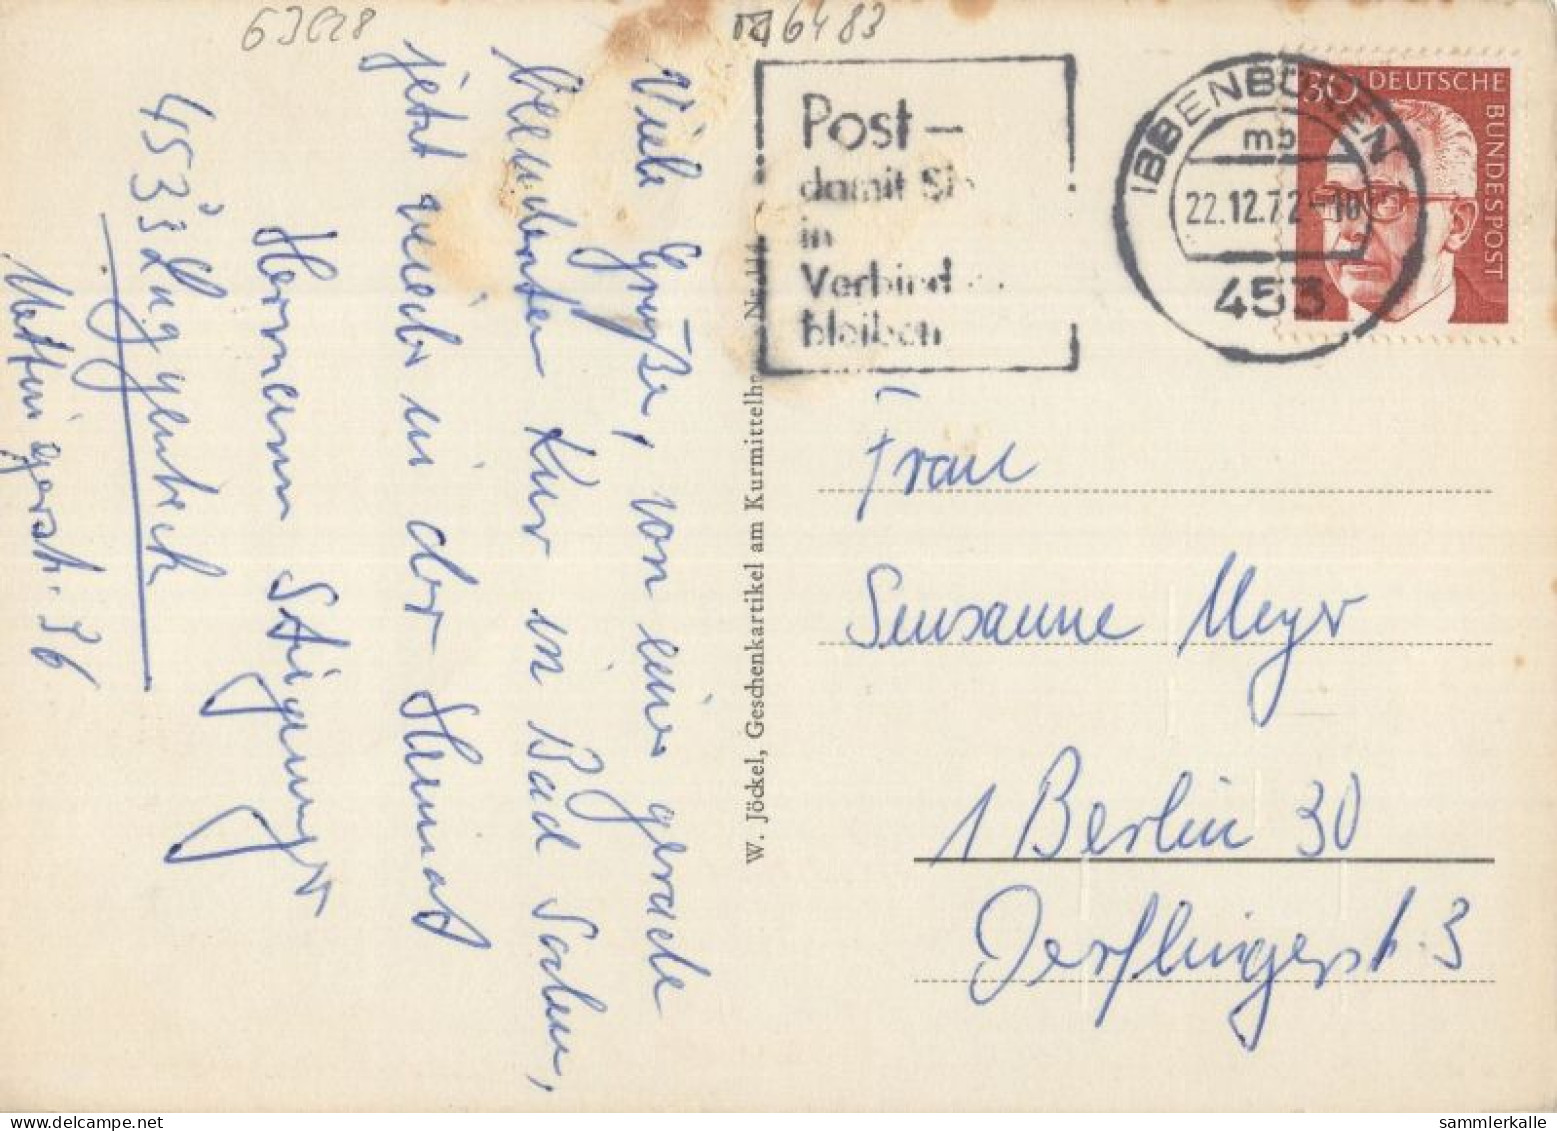 63628
6483
Viele Grüße, von einer gerade
beendeten Kur in Bad Soden,
jetzt wieder in der Heimat
Hermann
4533 Laggenbeck
Mettingerstr. 36
W. Jöckel, Geschenkartikel am Kurmittelh
Post –
damit Si
in
Verbind
bleiben
IBBENBÜREN
mb
22.12.72-18
453
30 DEUTSCHE
BUNDESPOST
Frau
Susanne Meyer
1 Berlin 30
Derflingerstr. 3
sammlerkalle